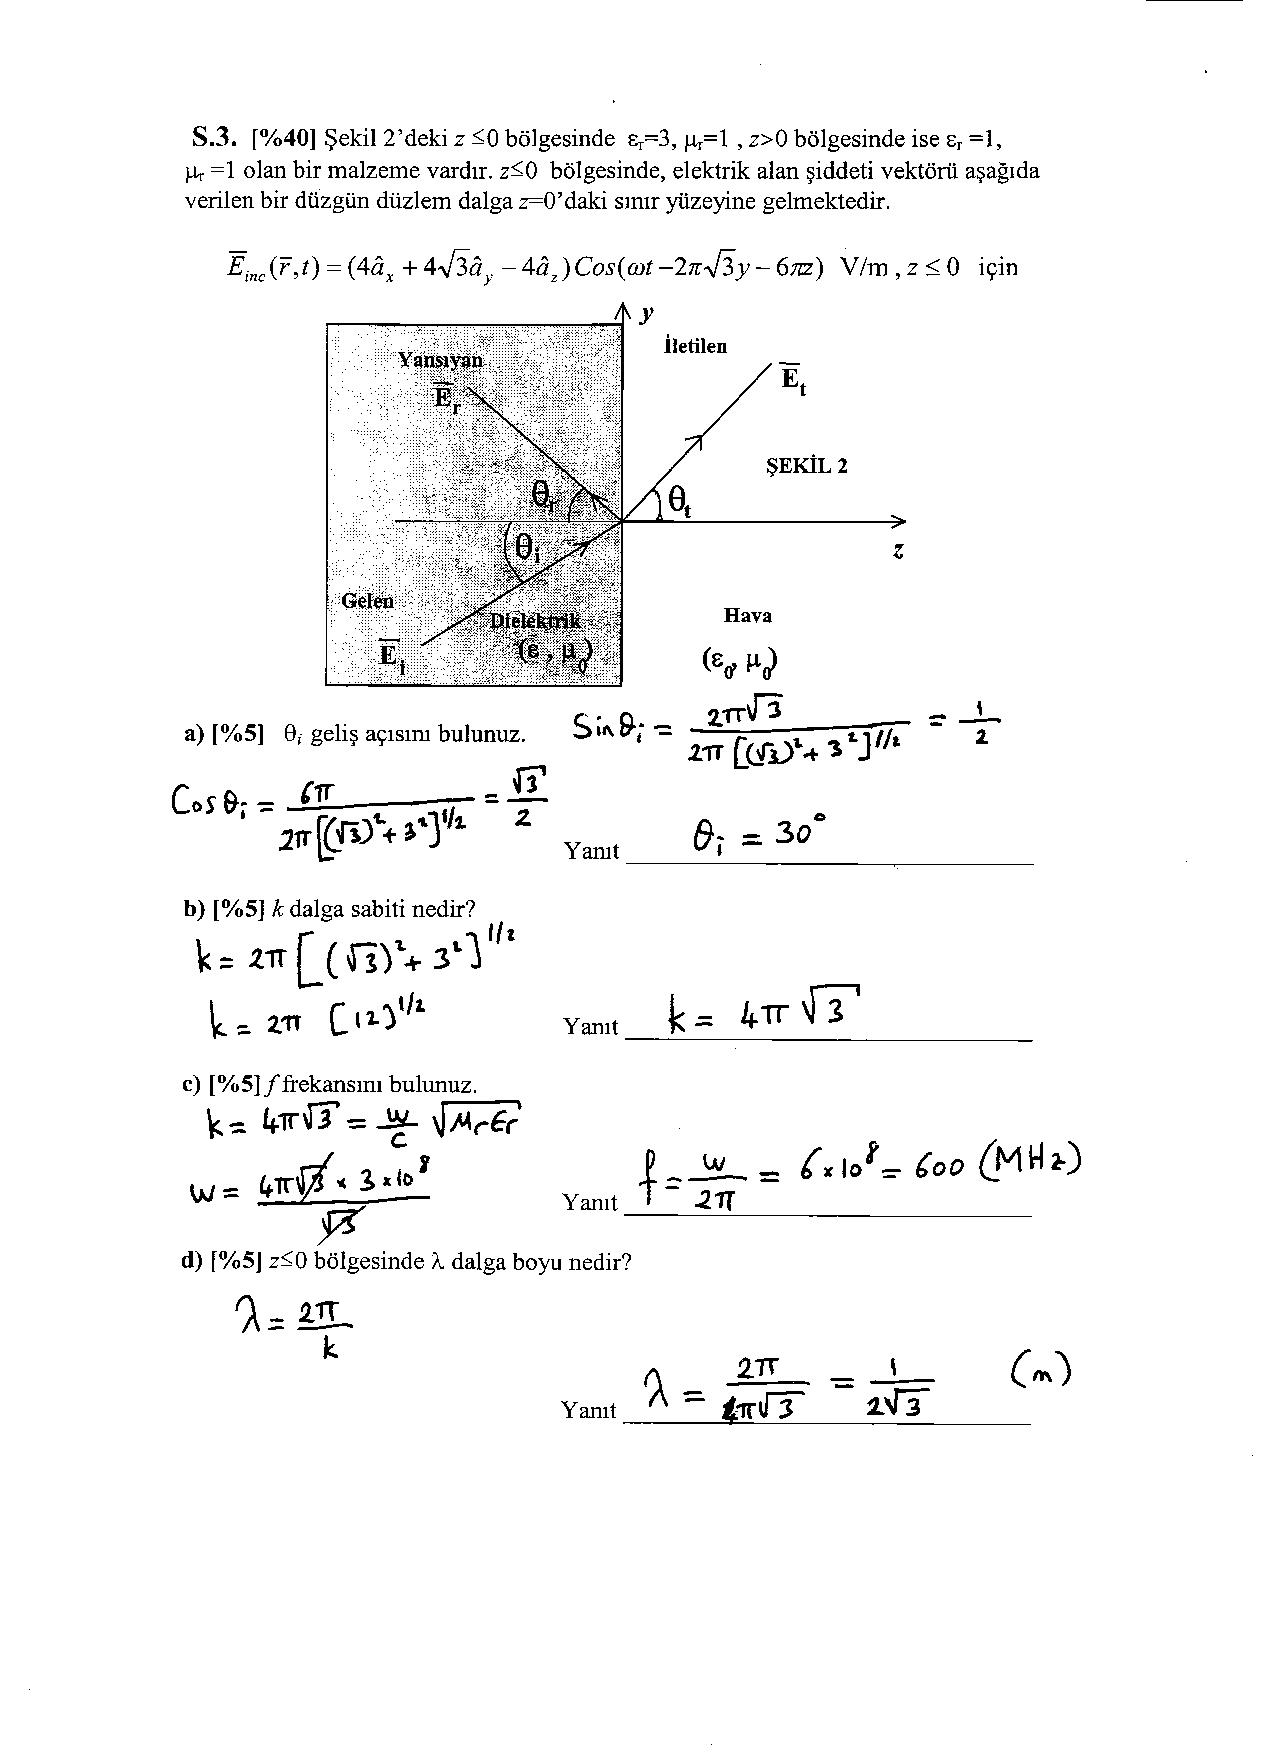 S.3. [%40] Şekil 2'deki z ≤0 bölgesinde εr=3, μr=1 , z>0 bölgesinde ise εr =1,
μr =1 olan bir malzeme vardır. z≤0 bölgesinde, elektrik alan şiddeti vektörü aşağıda
verilen bir düzgün düzlem dalga z=0'daki sınır yüzeyine gelmektedir.
E̅inc(r̅,t) = (4âx + 4√3ây − 4âz)Cos(ωt −2π√3y − 6πz) V/m , z ≤ 0 için
y
İletilen
Yansıyan
E̅t
E̅r
ŞEKİL 2
θr
θt
θi
z
Gelen
Dielektrik
Hava
E̅i
(ε , μ0)
(ε0, μ0)
a) [%5] θi geliş açısını bulunuz. Sinθi = 2π√3 / 2π[(√3)²+ 3²]^1/2 = 1/2
Cosθi = 6π / 2π[(√3)²+ 3²]^1/2 = √3/2
Yanıt θi = 30°
b) [%5] k dalga sabiti nedir?
k = 2π[(√3)²+ 3²]^1/2
k = 2π [12]^1/2
Yanıt k = 4π√3
c) [%5] f frekansını bulunuz.
k = 4π√3 = w/c √μrεr
w = 4π√3 × 3×10^8 / √3
Yanıt f = w/2π = 6×10^8 = 600 (MHz)
d) [%5] z≤0 bölgesinde λ dalga boyu nedir?
λ = 2π/k
Yanıt λ = 2π/4π√3 = 1/2√3 (m)